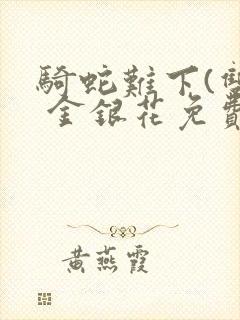 騎蛇難下(雙
金銀花免費
黃燕霞